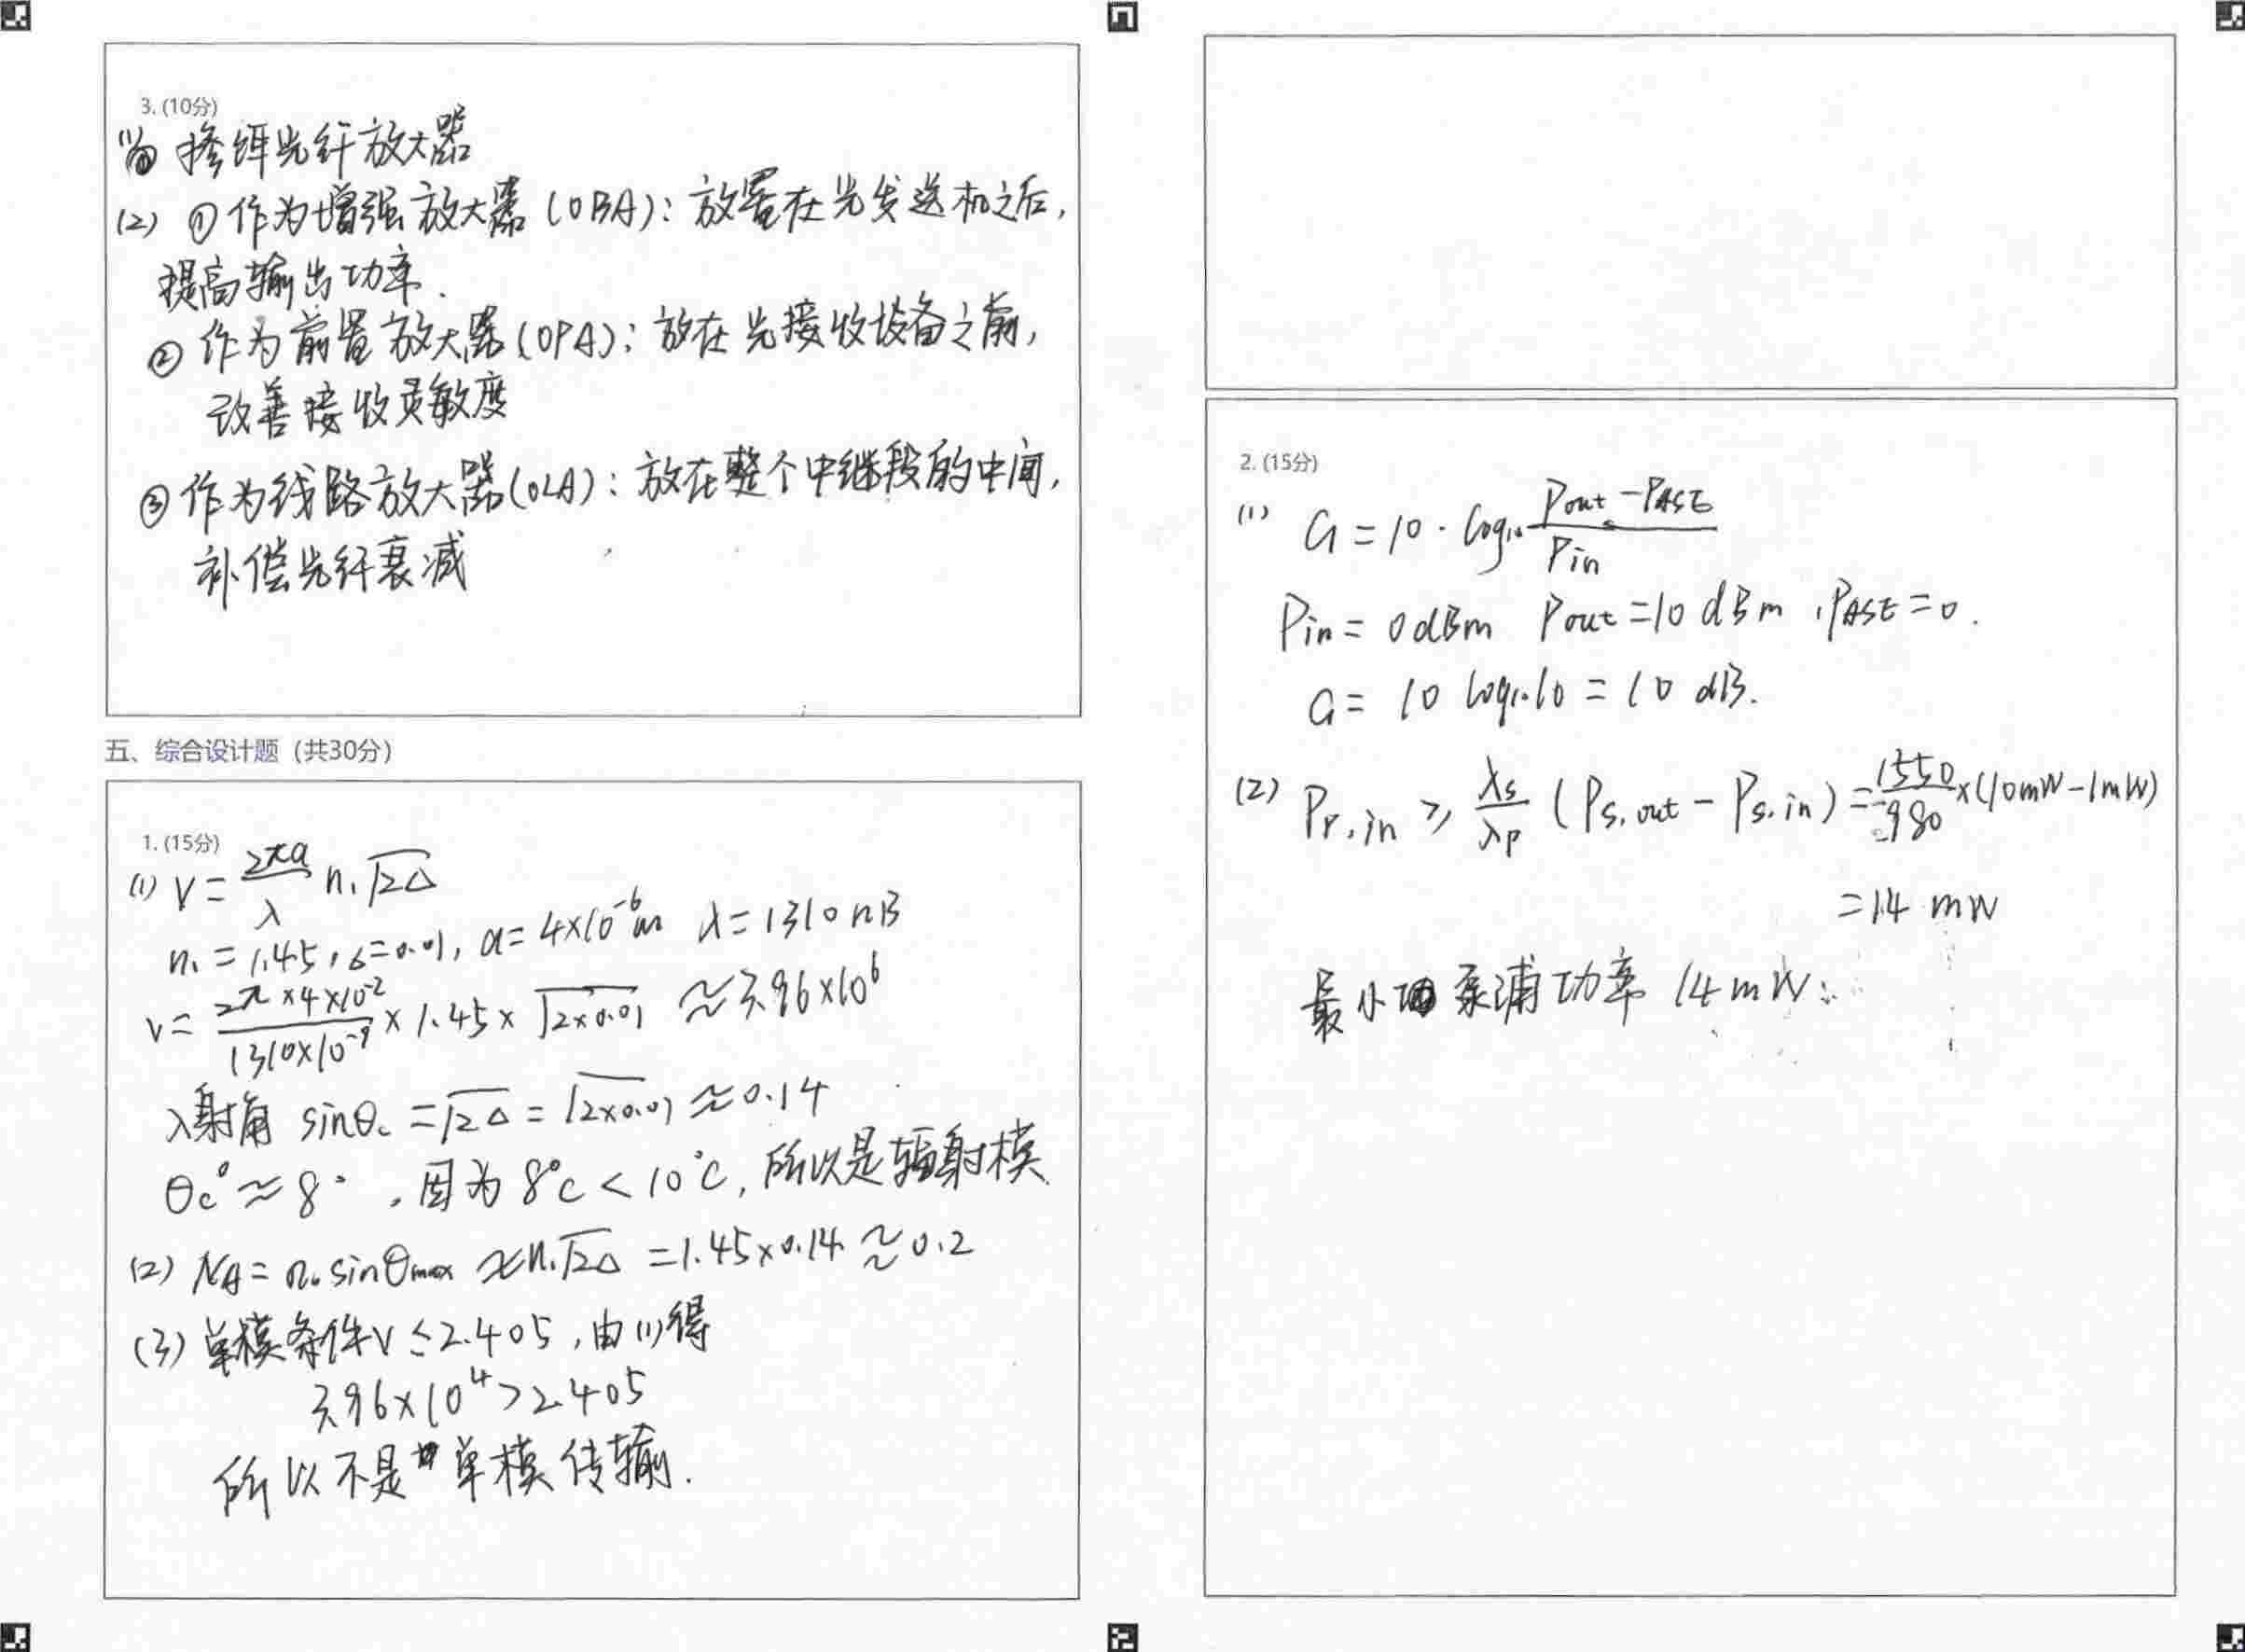 3. (10分)
(1) 掺铒光纤放大器
(2) ①作为增强放大器(OBA): 放置在光发送机之后,
提高输出功率.
② 作为前置放大器(OPA): 放在光接收设备之前,
改善接收灵敏度
③作为线路放大器(OLA): 放在整个中继段的中间,
补偿光纤衰减
五、综合设计题（共30分）
1. (15分)
(1) V = 2πa/λ n₁√2Δ
n₁ = 1.45, Δ=0.01, a = 4×10⁻⁶m λ = 1310nB
V = 2π×4×10⁻²/1310×10⁻⁹ × 1.45 × √2×0.01 ≈ 3.96×10⁶
入射角 sinθc = √2Δ = √2×0.01 ≈ 0.14
θc° ≈ 8°, 因为 8°C < 10°C, 所以是辐射模
(2) NA = n₀ sinθmax ≈ n₁√2Δ = 1.45×0.14 ≈ 0.2
(3) 单模条件V ≤ 2.405, 由(1)得
3.96×10⁴ > 2.405
所以不是单模传输.
2. (15分)
(1) G = 10 · log₁₀ Pout - PASE/Pin
Pin = 0dBm Pout = 10 dBm , PASE = 0.
G = 10 log₁₀10 = 10 dB.
(2) Pp,in ≥ λs/λp (Ps,out - Ps,in) = 1550/980 ×(10mW-1mW)
= 14 mW
最小泵浦功率 14mW.